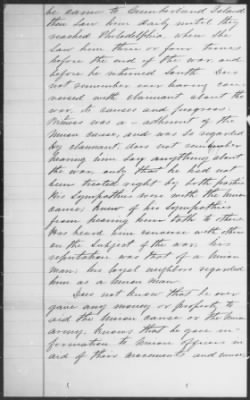 he came to Cumberland Island
then saw him daily until they
reached Philadelphia, when she
saw him three or four times
before the end of the war and
before he returned South. Does
not remember ever having con
versed with claimant about the
war, its causes and progress.
Witness was a adherent of the
Union cause, and was so regarded
by claimant. does not remember
hearing him say anything about
the war only that he had not
been treated right by both parties
His sympathies were with the Union
cause. Knew of his sympathies
from hearing him talk to others
Has heard him converse with others
on the subject of the war. his
reputation was that of a Union
man. his loyal neighbors regarded
him as a Union man.
Does not know that he ever
gave any money or property to
aid the Union cause or the Union
army. Knows that he gave in
formation to Union officers in
aid of their movements and